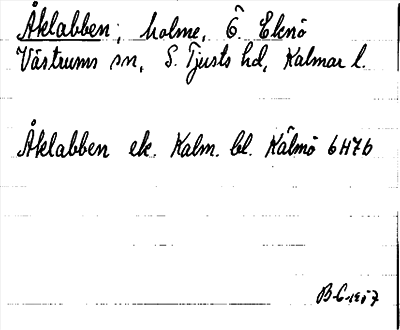 Åklabben, holme, Ö. Eknö
Västrums sn, S. Tjusts hd, Kalmar l.
Åklabben ek. Kalm. bl. Kälmö 6H7b